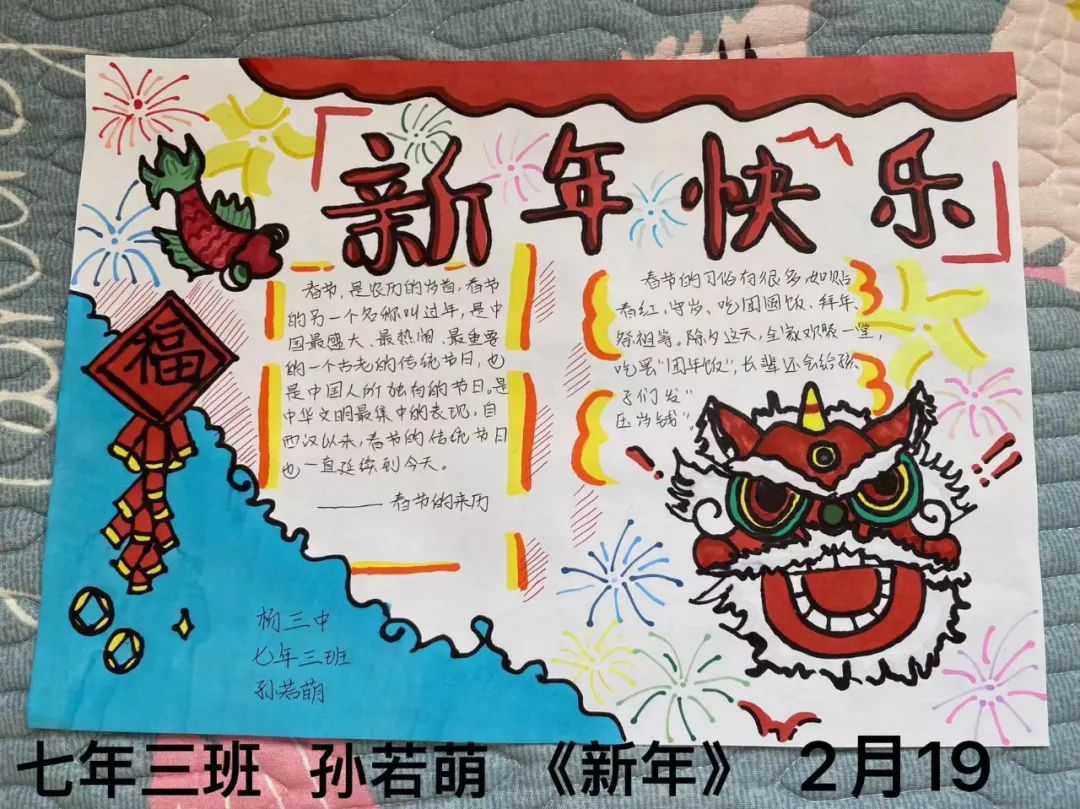 新年快乐
福
春节，是农历的岁首，春节
的另一个名称叫过年，是中
国最盛大、最热闹、最重要
的一个古老的传统节日，也
是中国人所独有的节日。是
中华文明最集中的表现，自
西汉以来，春节的传统节日
也一直延续到今天。
——春节的来历
春节的习俗有很多，如贴
春红，守岁、吃团圆饭、拜年、
祭祖等。除夕这天，全家欢聚一堂，
吃罢“团年饭”，长辈还会给孩
子们发“
压岁钱”。
杨三中
七年三班
孙若萌
七年三班 孙若萌 《新年》 2月19